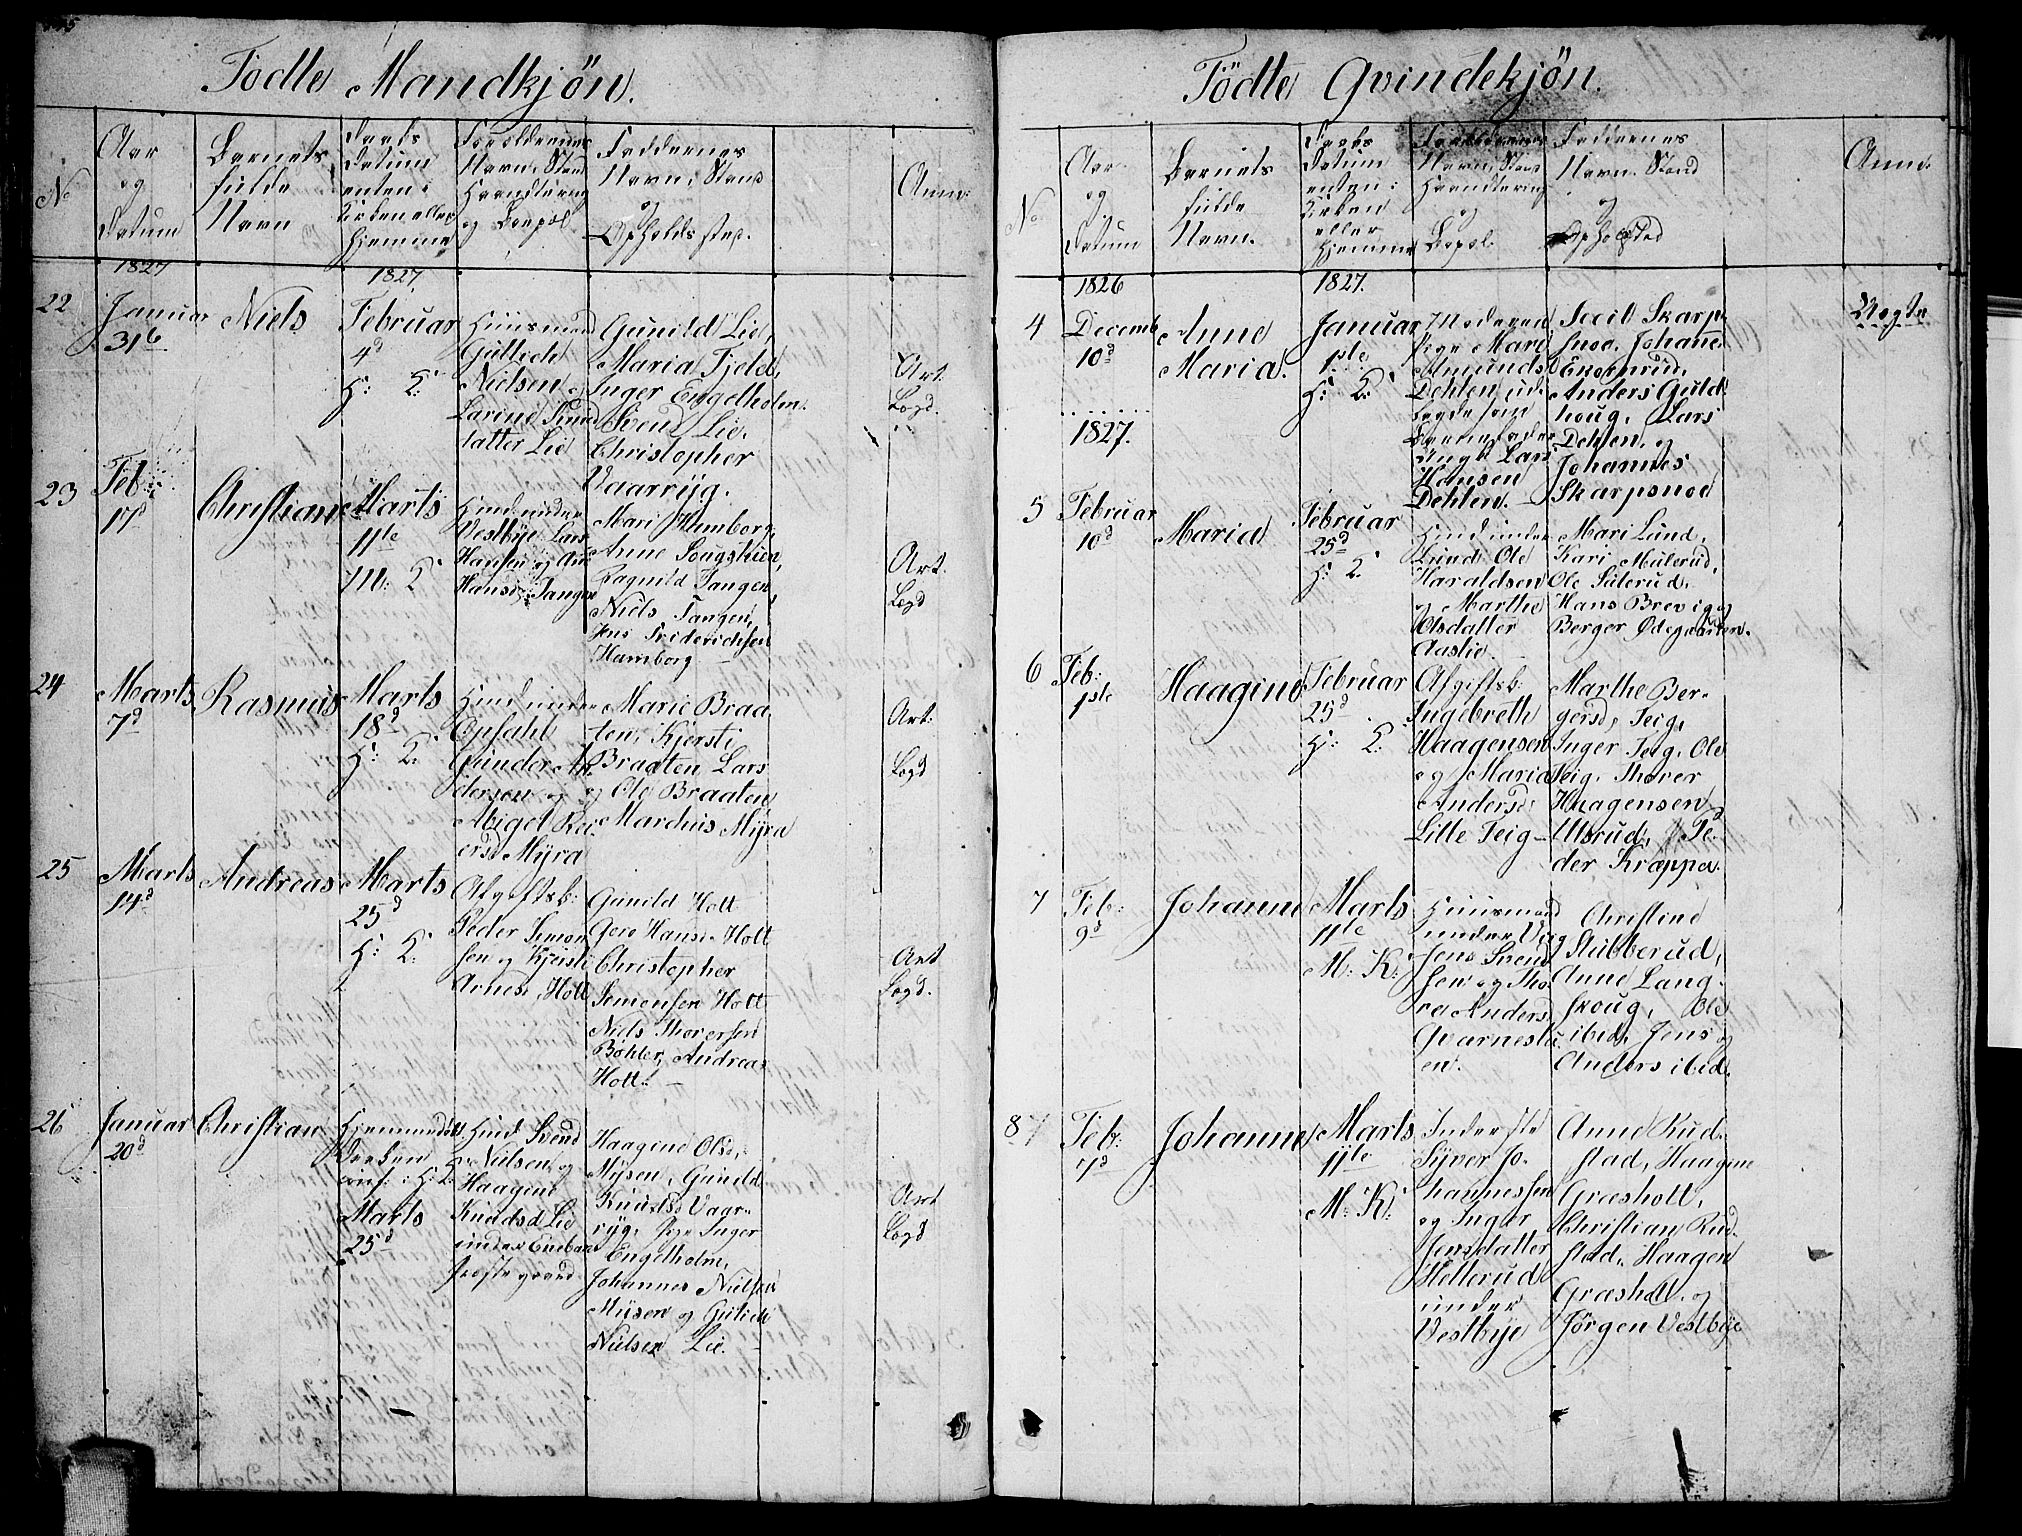 Födte Mandkjön.
No
Aar
og
Datum
Barnets
fulde
Navn
Daabs
Datum
enten i
Kirken eller
hjemme
Forældrenes
Navn, Stand
Haandtering
og Boepæl
Faddernes
Navn, Stand
og
Opholdssted.
Anm:
1827
1827.
22
Januar
31te
Niels
Februar
4d
H: K:
Huusmand
Gullich
Nielsen og
Larine Knud
datter Lie
Gunild Lie,
Maria Fjeld,
Inger Engelholm.
Svend Lie.
Christopher
Vaarryg.
Art.
Legd.
23
Feb:
17d
Christian
Marts
11te
M: K:
Huus under
Vestbye Lars
Hansen og Ane
Hansd. Tangen
Mari Humborg,
Anne Songstkien,
Ragnild Tangen,
Niels Tangen,
Jens Friderichsen
Humborg
Art.
Legd
24
Marts
7d
Rasmus
Marts
18d
H: K:
Huus under
Opsahl
Gunder An
dersen og
Abigel Rei
ersd Myra
Marie Braa
ten, Kjersti
Braaten Lars
og Ole Braaten
Marchus Myra
Art:
Legd
25
Marts
14d
Andreas
Marts
25d
H: K:
Afgiftsb:
Peder Simon
sen og Kjersti
Arnesd. Holt
Gunild Holt
Gero Hansd. Holt
Christopher
Simensen Holt
Niels Thorersen
Böhler, Andreas
Holt.
Art
Legd.
26
Januar
20d
Christian
Hjemmedöbt
Daaben
conf: i H: K:
Marts
25d
Huus Svend
Nielsen og
Haagine
Knudsd Lie
under Eneba
Præstegaard
Haagine Olsd,
Mysen, Gunild
Knudsd Vaar-
ryg, Pige Inger
Engelholm,
Johannes Nielsen
Mysen og Gulich
Nielsen Lie.
Art
Legd
Födte Qvindekjön.
No
Aar
og
Datum
Barnets
fulde
Navn.
Daabs
Datum
enten i
Kirken
eller
hjemme
Forældrenes
Navn, Stand
Haandtering
og
Boepæl.
Faddernes
Navn. Stand
og
Opholdsted
Anm:
1826
1827.
4
Decemb
10d
Anne
Maria.
Januar
1ste
H: K:
Moderen
Pige Mari
Amundsd
Dehlen ud-
lagde som
Barnefader
Ungk Lars
Hansen
Dehlen.
Sicil Skarp
snoe. Johane
Ekornrud,
Anders Guld
houg, Lars
Dehlen, og
Johannes
Skarpsnoe
Uægte
1827.
5
Februar
10d
Maria
Februar
25d
H: K:
Huus under
Lund Ole
Haraldsen
og Marthe
Olsdatter
Aaslie
Mari Lund,
Kari Mulerud,
Ole Sulerud,
Hans Brevig og
Berger Ødegaarden.
6
Feb:
1ste
Haagine
Februar
25d
H: K:
Afgiftsb:
Ingebreth
Haagensen
og Maria
Andersd:
Lille Teig
Marthe Ber-
gersd, Teig,
Inger Teig, Ole
Teig, Thorer
Haagensen
Ulsrud, Pe-
der Kræppa.
7
Feb:
9d
Johanne
Marts
11te
M: K:
Huusmand
under Vig
Jens Svend
sen og Tho-
re Anders
Qvarnestu
en.
Christine
Stubberud,
Anne Lang-
skoug, Ole
ibid, Jens og
Anders ibid.
8
Feb:
7d
Johanne
Marts
11te
M: K:
Inderste
Syver Jo-
hannessen
og Inger
Jensdatter
Hellerud
under
Vestbye
Anne Rud-
stad, Haagine
Græsholt,
Christian Rud-
stad, Haagen
Græsholt og
Jörgen Vestbye